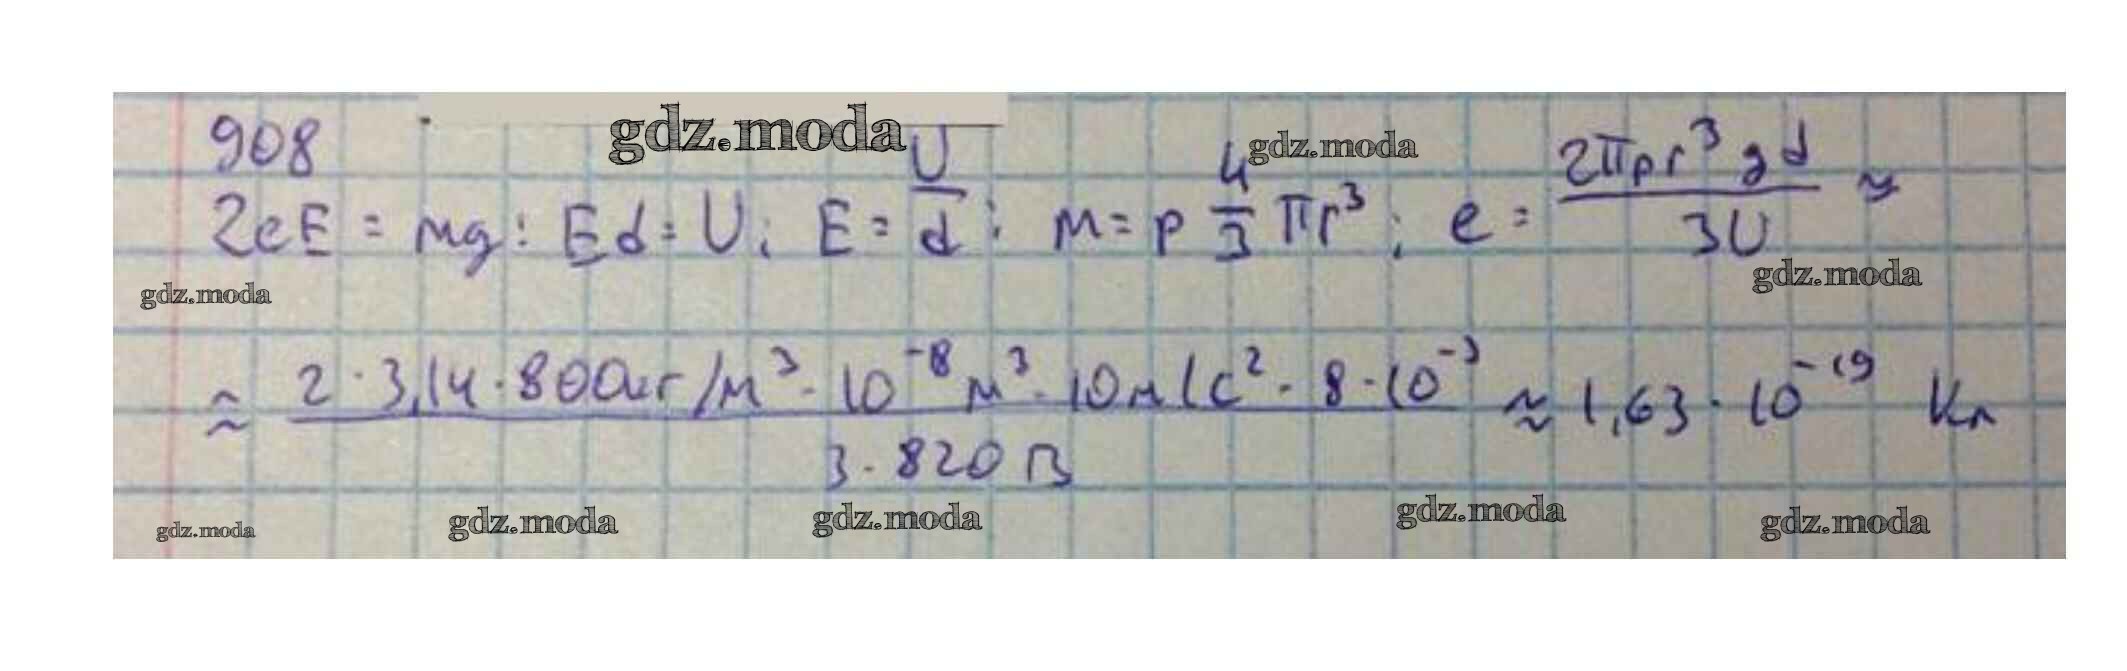 908 gdz.moda gdz.moda
2eE = mg; Ed = U; E = U/d; m = ρ 4/3 πr³; e = 2πρr³gd/3U ≈
gdz.moda gdz.moda
≈ 2·3,14·800кг/м³·10⁻⁸м³·10м/с²·8·10⁻³/3·820В ≈ 1,63·10⁻¹⁹ Кл
gdz.moda gdz.moda gdz.moda gdz.moda gdz.moda